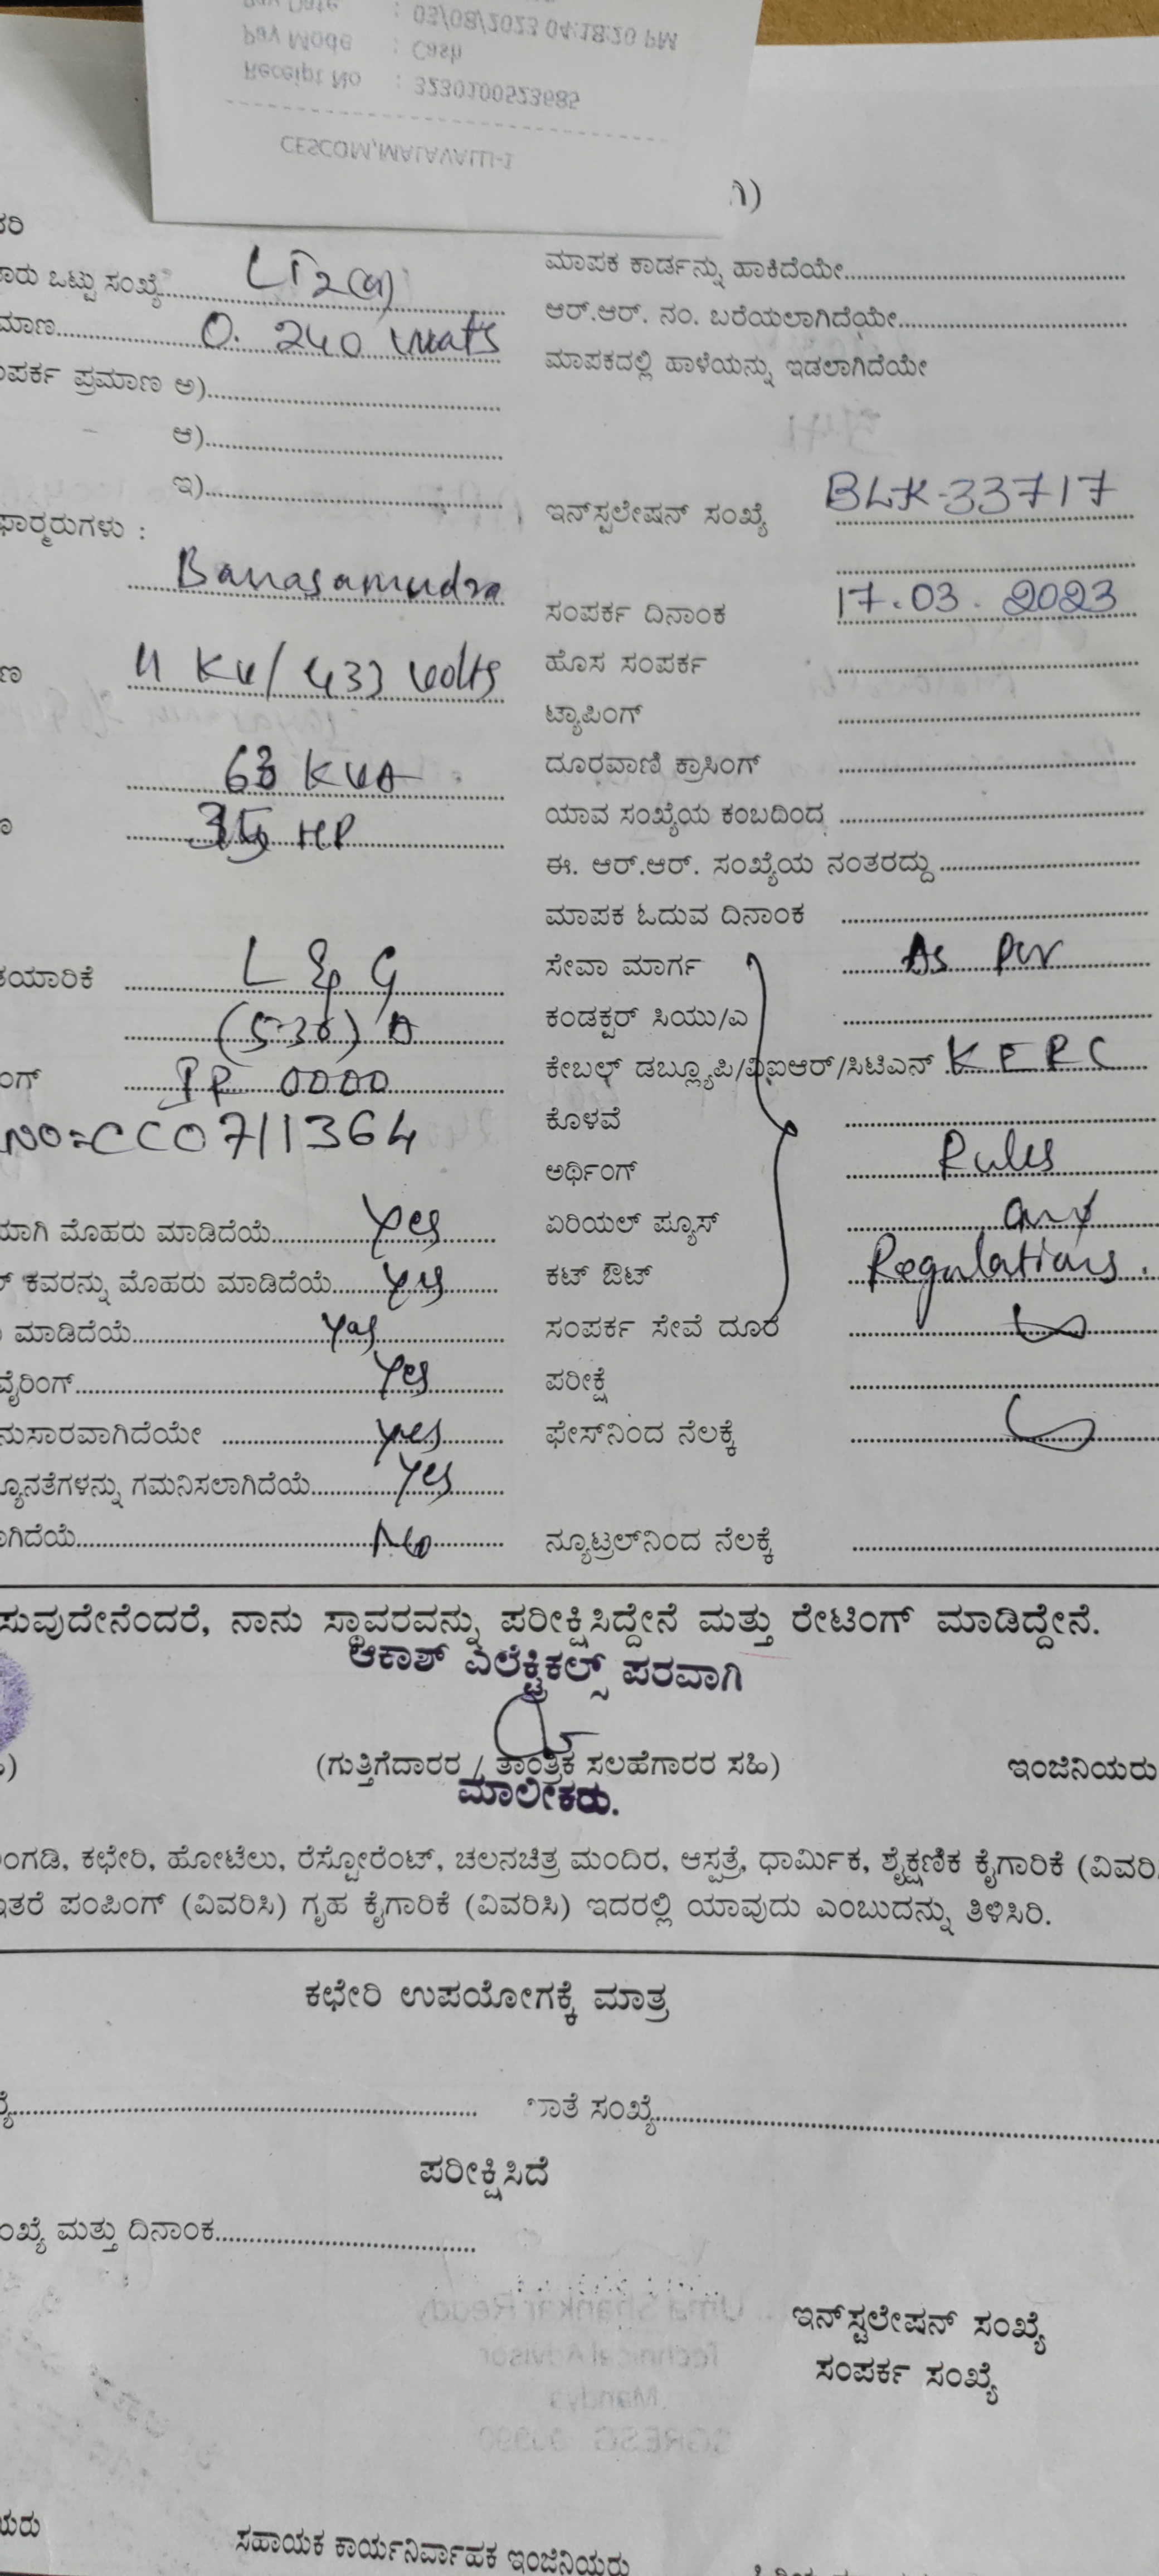 Pay Date : 03/08/2023 04:18:20 PM
Pay Mode : Cash
Receipt No : 3230100523685
CESCOM,MALAVALLI-1
ಒಟ್ಟು ಸಂಖ್ಯೆ LT2(a)
ಮಾಪಕ ಕಾರ್ಡನ್ನು ಹಾಕಿದೆಯೇ
0. 240 watts
ಆರ್.ಆರ್. ನಂ. ಬರೆಯಲಾಗಿದೆಯೇ
ಪ್ರಮಾಣ ಅ)
ಮಾಪಕದಲ್ಲಿ ಹಾಳೆಯನ್ನು ಇಡಲಾಗಿದೆಯೇ
ಆ)
ಇ)
ಇನ್‌ಸ್ಟಲೇಷನ್ ಸಂಖ್ಯೆ BLK-33717
Banasamudra
ಸಂಪರ್ಕ ದಿನಾಂಕ 17.03.2023
11 KV/433 volts
ಹೊಸ ಸಂಪರ್ಕ
ಟ್ಯಾಪಿಂಗ್
63 KVA
ದೂರವಾಣಿ ಕ್ರಾಸಿಂಗ್
HP
ಯಾವ ಸಂಖ್ಯೆಯ ಕಂಬದಿಂದ
ಈ. ಆರ್.ಆರ್. ಸಂಖ್ಯೆಯ ನಂತರದ್ದು
ಮಾಪಕ ಓದುವ ದಿನಾಂಕ
ತಯಾರಿಕೆ L & G
ಸೇವಾ ಮಾರ್ಗ As per
(5-30) A
ಕಂಡಕ್ಟರ್ ಸಿಯು/ಎ
0000
ಕೇಬಲ್ ಡಬ್ಲ್ಯೂಪಿ/ವಿಐಆರ್/ಸಿಟಿಎನ್ KERC
NO=CC0711364
ಕೊಳವೆ
ಅರ್ಥಿಂಗ್ Rules
ಮೊಹರು ಮಾಡಿದೆಯೆ Yes
ಏರಿಯಲ್ ಫ್ಯೂಸ್ and
ಕವರನ್ನು ಮೊಹರು ಮಾಡಿದೆಯೆ Yes
ಕಟ್ ಔಟ್ Regulations.
ಮಾಡಿದೆಯೆ Yes
ಸಂಪರ್ಕ ಸೇವೆ ದೂರ
ವೈರಿಂಗ್ Yes
ಪರೀಕ್ಷೆ
Yes
ಫೇಸ್‌ನಿಂದ ನೆಲಕ್ಕೆ
ಗಮನಿಸಲಾಗಿದೆಯೆ Yes
No
ನ್ಯೂಟ್ರಲ್‌ನಿಂದ ನೆಲಕ್ಕೆ
ನಾನು ಸ್ಥಾವರವನ್ನು ಪರೀಕ್ಷಿಸಿದ್ದೇನೆ ಮತ್ತು ರೇಟಿಂಗ್ ಮಾಡಿದ್ದೇನೆ.
ಆಕಾಶ್ ಎಲೆಕ್ಟ್ರಿಕಲ್ಸ್ ಪರವಾಗಿ
(ಗುತ್ತಿಗೆದಾರರ / ತಾಂತ್ರಿಕ ಸಲಹೆಗಾರರ ಸಹಿ) ಇಂಜಿನಿಯರು
ಮಾಲೀಕರು.
ಕಛೇರಿ, ಹೋಟೆಲು, ರೆಸ್ಟೋರೆಂಟ್, ಚಲನಚಿತ್ರ ಮಂದಿರ, ಆಸ್ಪತ್ರೆ, ಧಾರ್ಮಿಕ, ಶೈಕ್ಷಣಿಕ ಕೈಗಾರಿಕೆ (ವಿವರಿ
ಇತರೆ ಪಂಪಿಂಗ್ (ವಿವರಿಸಿ) ಗೃಹ ಕೈಗಾರಿಕೆ (ವಿವರಿಸಿ) ಇದರಲ್ಲಿ ಯಾವುದು ಎಂಬುದನ್ನು ತಿಳಿಸಿರಿ.
ಕಛೇರಿ ಉಪಯೋಗಕ್ಕೆ ಮಾತ್ರ
ಸಂಖ್ಯೆ
ಪರೀಕ್ಷಿಸಿದೆ
ಮತ್ತು ದಿನಾಂಕ
ಇನ್‌ಸ್ಟಲೇಷನ್ ಸಂಖ್ಯೆ
ಸಂಪರ್ಕ ಸಂಖ್ಯೆ
ಸಹಾಯಕ ಕಾರ್ಯನಿರ್ವಾಹಕ ಇಂಜಿನಿಯರು